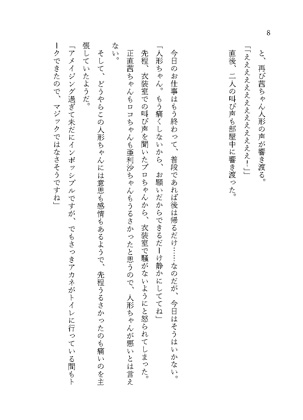 8
と、再び茜ちゃん人形の声が響き渡る。
「「ええええええええええええええええ！」」
直後、二人の叫び声も部屋中に響き渡った。
今日のお仕事はもう終わって、普段であれば後は帰るだけ……なのだが、今日はそうはいかない。
「人形ちゃん。もう痛くしないから、お願いだからできるだーけ静かにしててね」
先程、衣装室での叫び声を聞いたプロちゃんから、衣装室で騒がないようにと怒られてしまった。
正直茜ちゃんもロコちゃんも亜利沙ちゃんもうるさかったと思うので、人形ちゃんが悪いとは言え
ない。
そして、どうやらこの人形ちゃんには意思も感情もあるようで、先程うるさかったのも痛いのを主
張していたようだ。
「アメイジング過ぎて未だにインポッシブルですが、でもさっきアカネがトイレに行っている間もト
ークできたので、マジックではなさそうですね」